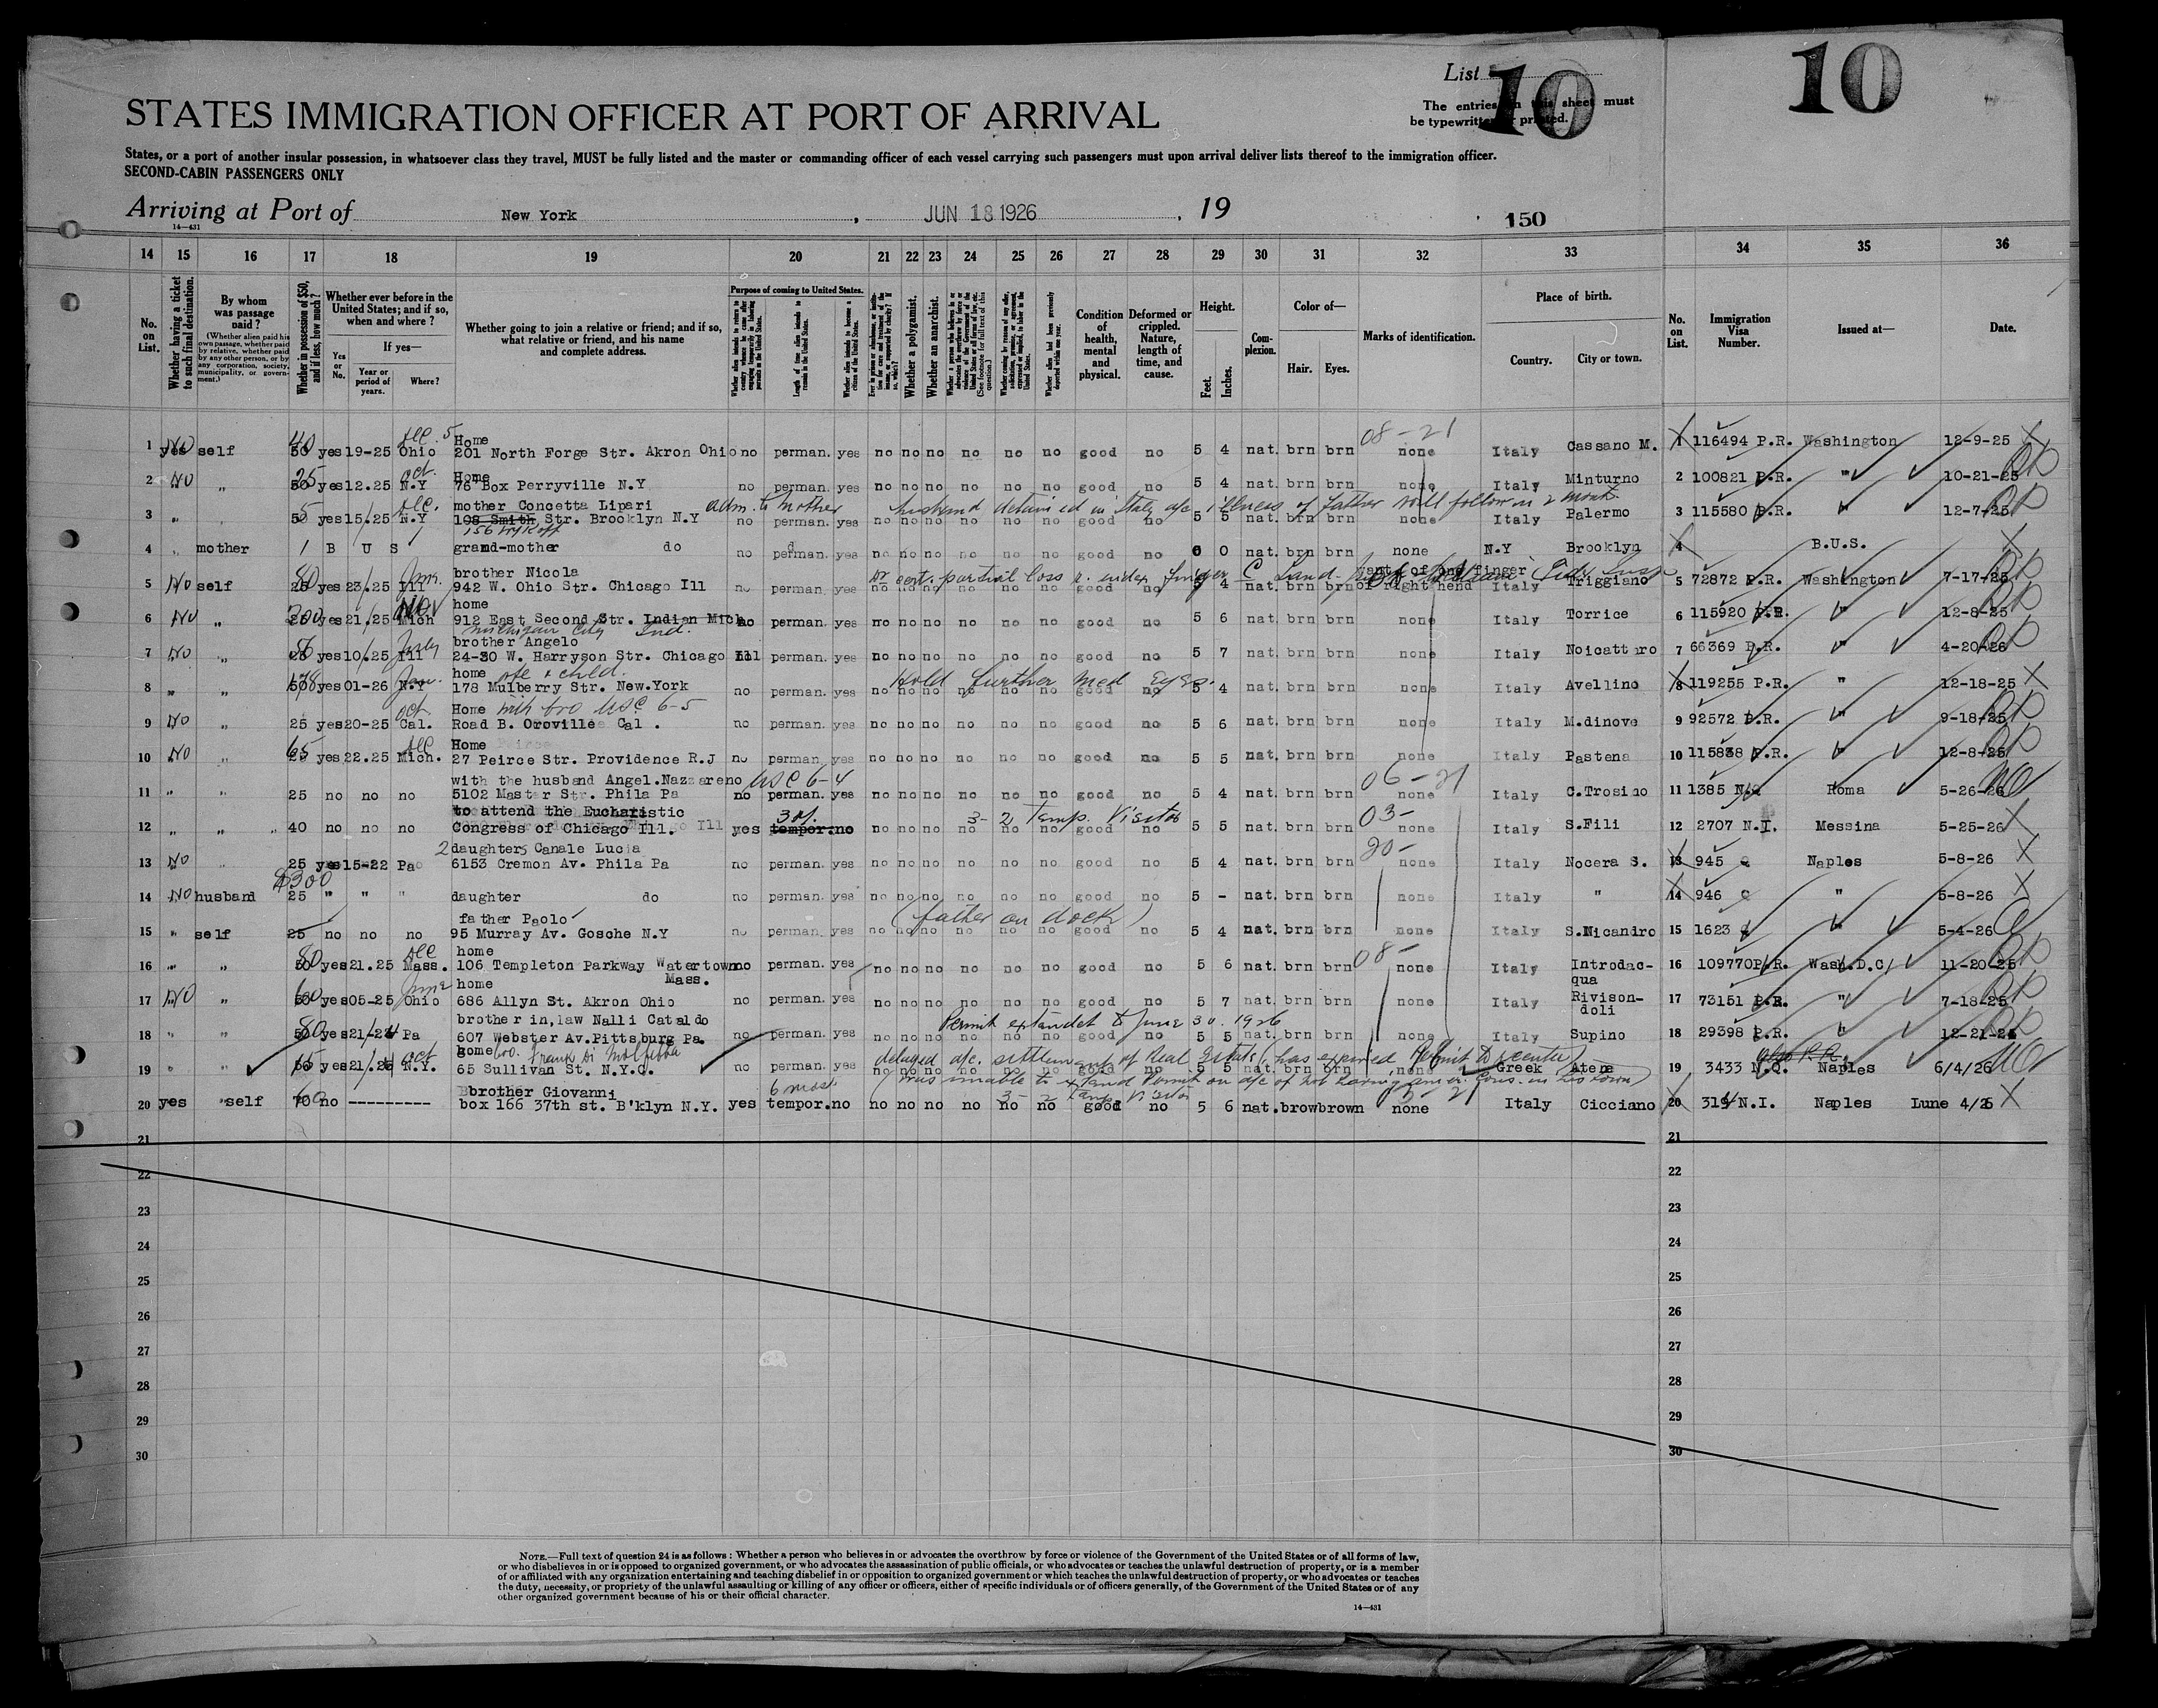 List 10
10
The entries on this sheet must
be typewritten or printed.
STATES IMMIGRATION OFFICER AT PORT OF ARRIVAL
States, or a port of another insular possession, in whatsoever class they travel, MUST be fully listed and the master or commanding officer of each vessel carrying such passengers must upon arrival deliver lists thereof to the immigration officer.
SECOND-CABIN PASSENGERS ONLY
Arriving at Port of New York, JUN 18 1926, 19
14—431
150
14 15 16 17 18 19 20 21 22 23 24 25 26 27 28 29 30 31 32 33 34 35 36
No. on List.
Whether having a ticket to such final destination.
By whom was passage paid?
(Whether alien paid his own passage, whether paid by relative, whether paid by any other person, or by any corporation, society, municipality, or government.)
Whether in possession of $50, and if less, how much?
Whether ever before in the United States; and if so, when and where?
Yes or No.
If yes—
Year or period of years.
Where?
Whether going to join a relative or friend; and if so, what relative or friend, and his name and complete address.
Purpose of coming to United States.
Length of time alien intends to remain in the United States.
Whether alien intends to become a citizen of the United States.
Whether a polygamist.
Whether an anarchist.
Condition of health, mental and physical.
Deformed or crippled. Nature, length of time, and cause.
Height.
Feet.
Inches.
Complexion.
Color of—
Hair.
Eyes.
Marks of identification.
Place of birth.
Country.
City or town.
No. on List.
Immigration Visa Number.
Issued at—
Date.
Home
1 yes No self 50 40 yes 19-25 Dec. 5 Ohio 201 North Forge Str. Akron Ohio no perman. yes no no no no no no good no 5 4 nat. brn brn none 08-21 Italy Cassano M. 1 116494 P.R. Washington 12-9-25
Home
2 No " 50 25 yes 12.25 Oct. N.Y 76 Box Perryville N.Y no perman. yes no no no no no no good no 5 4 nat. brn brn none Italy Minturno 2 100821 P.R. " 10-21-25
mother Concetta Lipari adm. to mother husband detained in Italy a/c illness of father will follow in 2 mont.
3 " 50 5 yes 15.25 Dec. N.Y 108 Smith Str. Brooklyn N.Y no perman. yes no no no no no no good no 5 5 nat. brn brn none Italy Palermo 3 115580 P.R. " 12-7-25
4 " mother B U S grand-mother do no perman. yes no no no no no no good no 0 0 nat. brn brn none N.Y Brooklyn 4 B.U.S.
brother Nicola Dr cert. partial loss r. index finger wants of one finger
5 No self 25 yes 23.25 Ill 942 W. Ohio Str. Chicago Ill no perman. yes no no no no no no good no 5 4 nat. brn brn of right hend Italy Triggiano 5 72872 P.R. Washington 7-17-25
home
6 No " 200 yes 21.25 Nov Mich 912 East Second Str. Indian Mich no perman. yes no no no no no no good no 5 6 nat. brn brn none Italy Torrice 6 115920 P.R. " 12-8-25
Michigan City Ind.
brother Angelo
7 No " yes 10.25 July Ill 24-30 W. Harryson Str. Chicago Ill perman. yes no no no no no no good no 5 7 nat. brn brn none Italy Noicattaro 7 66369 P.R. " 4-20-26
home wfe & child. Hold further Med Eyes.
8 " " yes 01-26 Jan. N.Y 178 Mulberry Str. New.York no perman. yes no no no no no no good no 5 4 nat. brn brn none Italy Avellino 8 119255 P.R. " 12-18-25
Home with bro USC 6-5
9 No " 25 yes 20-25 Oct Cal. Road B. Oroville Cal. no perman. yes no no no no no no good no 5 6 nat. brn brn none Italy M.dinove 9 92572 P.R. " 9-18-25
Home
10 No " 25 65 yes 22.25 Dec Mich. 27 Peirce Str. Providence R.J no perman. yes no no no no no no good no 5 5 nat. brn brn none Italy Pastena 10 115838 P.R. " 12-8-25
with the husband Angel.Nazzareno USC 6-4
11 " " 25 no no no 5102 Master Str. Phila Pa no perman. yes no no no no no no good no 5 4 nat. brn brn none 06-21 Italy C.Trosino 11 1385 N.Q Roma 5-26-26
to attend the Eucharistic
12 " " 40 no no no Congress of Chicago Ill. yes tempor. no 3-2 Temp. Visitor no no no no no no good no 5 5 nat. brn brn none 03- Italy S.Fili 12 2707 N.I. Messina 5-25-26
2 daughters Canale Lucia
13 No " 25 yes 15-22 Pa 6153 Cremon Av. Phila Pa no perman. yes no no no no no no good no 5 4 nat. brn brn none 20- Italy Nocera S. 13 945 Q Naples 5-8-26
14 No husband 25 $300 " " " daughter do no perman. yes no no no no no no good no 5 - nat. brn brn none Italy " 14 946 Q " 5-8-26
father Paolo (father on dock)
15 " self 25 no no no 95 Murray Av. Gosche N.Y no perman. yes no no no no no no good no 5 4 nat. brn brn none Italy S.Nicandro 15 1623 Q " 5-4-26
home
16 " " 50 80 yes 21.25 Dec Mass. 106 Templeton Parkway Watertown Mass. no perman. yes no no no no no no good no 5 6 nat. brn brn none 08- Italy Introdacqua 16 109770 P.R. Wash.D.C. 11-20-25
home
17 No " 50 60 yes 05-25 June Ohio 686 Allyn St. Akron Ohio no perman. yes no no no no no no good no 5 7 nat. brn brn none Italy Rivisondoli 17 73151 P.R. " 7-18-25
brother in,law Nalli Cataldo Permit extended to June 30. 1926
18 " " 50 80 yes 21-24 Pa 607 Webster Av.Pittsburg Pa no perman. yes no no no no no no good no 5 5 nat. brn brn none Italy Supino 18 29398 P.R. " 12-21-24
home bro. Frank Di Molfetta delayed a/c. settlement of Real Estate (has expired Permit to reenter)
19 " " 50 65 yes 21.25 Oct N.Y. 65 Sullivan St. N.Y.C. no perman. yes no no no no no no good no 5 5 nat. brn brn none Greek Atene 19 3433 N.Q. also P.R. Naples 6/4/26
(was unable to extend Permit on a/c of not having Amer. Cons. in his town)
brother Giovanni 6 mos. 3-2 Temp Visitor
20 yes " self 70 no --------- box 166 37th st. B'klyn N.Y. yes tempor. no no no no no no no good no 5 6 nat. brow brown none Italy Cicciano 20 319 N.I. Naples Lune 4/26
21 21
22 22
23 23
24 24
25 25
26 26
27 27
28 28
29 29
30 30
NOTE.—Full text of question 24 is as follows: Whether a person who believes in or advocates the overthrow by force or violence of the Government of the United States or of all forms of law,
or who disbelieves in or is opposed to organized government, or who advocates the assassination of public officials, or who advocates or teaches the unlawful destruction of property, or is a member
of or affiliated with any organization entertaining and teaching disbelief in or opposition to organized government or which teaches the unlawful destruction of property, or who advocates or teaches
the duty, necessity, or propriety of the unlawful assaulting or killing of any officer or officers, either of specific individuals or of officers generally, of the Government of the United States or of any
other organized government because of his or their official character.
14—431